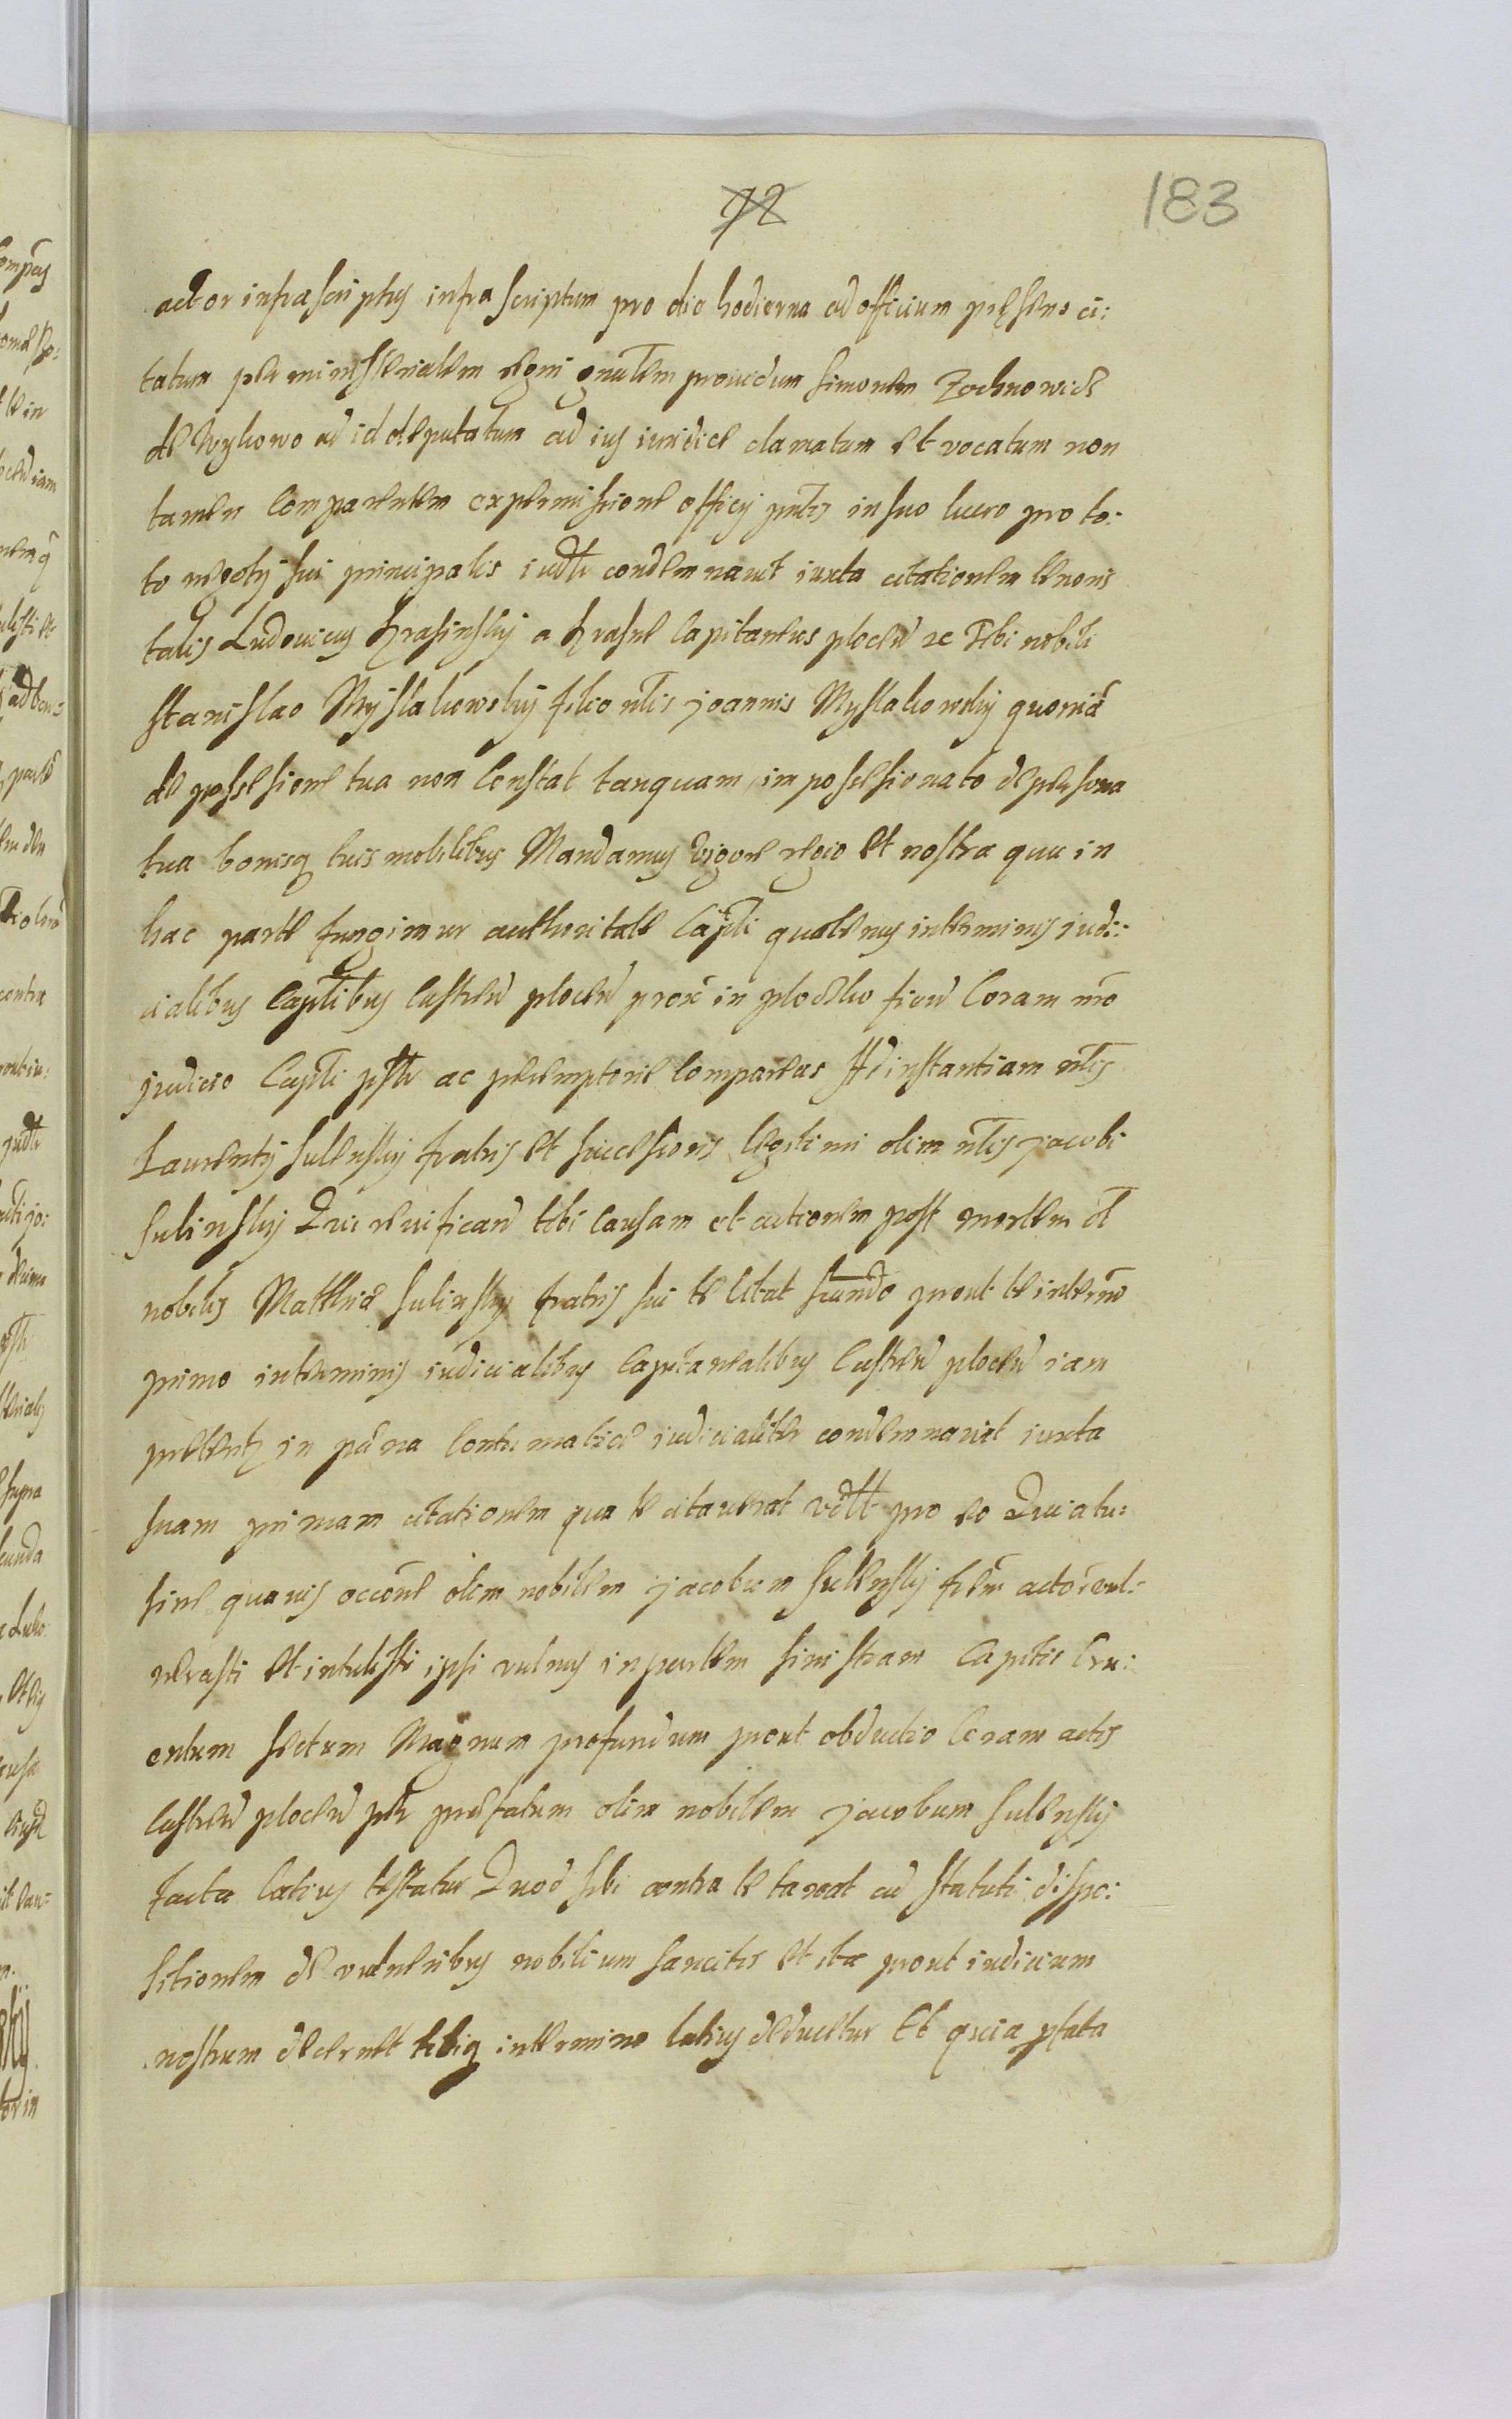 92
183
actor infrascriptus infrascriptum pro die hodierna ad officium pręsens ci:
tatum per ministerialem regni gnalem providum Simonem Zochnowicz
de Wykowo ad id deputatum ad ius iuridice clamatum et vocatum non
tamen comparentem ex permissione officij pntis in suo lucro pro to:
to negotij sui principalis iudtr condemnavit iuxta citationem tenoris
talis Ludovicus Krasinskij a Krasne capitaneus plocen̄ ꝛc Tibi nobili
Stanislao Myslakowskij filio nlis Joannis Myslakowskij quoniā
de possessione tua non constat tanquam impossesionato de persona
tua bonisq tuis mobilibus Mandamus vigore regio et nostra qua in
hac parte fungimur authoritate Capli quatenus in terminis iudi:
cialibus Caplibus Castren̄ plocen̄ prox̄ in Ploczko fien̄ Coram nr̄o
judicio Capli pstr ac peremptorie compareas Ad instantiam nlis
Laurentij Sulenskij fratris et successoris legitimi olim nlis Jacobi
Sulinskij Qui revifican̄ tibi causam et actionem post mortem ol
nobilis Matthię Sulinskij fratris sui te citat secundo prout te in termō
primo in terminis iudicialibus Capitanealibus Castren̄ plocen̄ iam
preteritis in pęna contumatię iudicialiter condemnavit iuxta
suam primam citationem qua te citaverat vdlt pro eo Quia tu
sine quavis occōne olim nobilem Jacobum Sulenskij frēm actōre vul:
nerasti et intulisti ipsi vulnus in partem sinistram Capitis cru:
entum sectum Magnum profundum prout obductio Coram actis
Castren̄ plocen̄ per prefatum olim nobilem Jacobum Sulenskij
facta latius testatur Quod sibi contra te tangit ad statuti dispo:
sitionem de vulneribus nobilium sancitis et ita prout iudicium
nostrum decernet tibiq in termino latius deducetur Et quia pfata